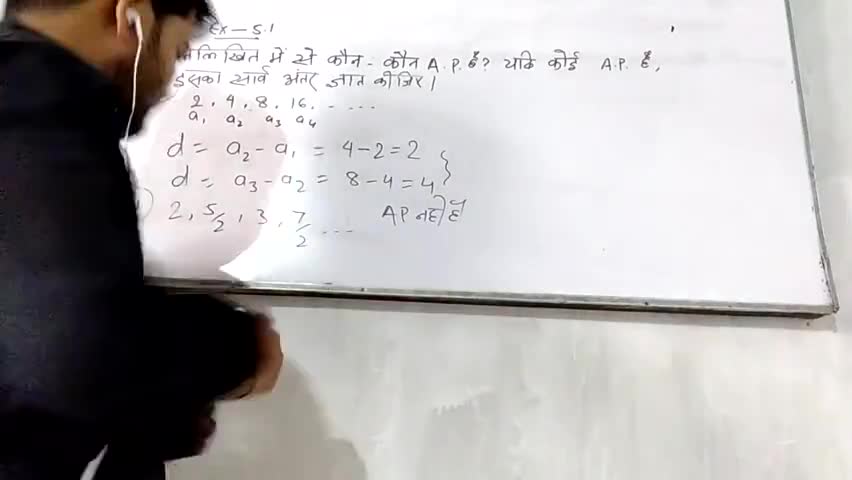 Ex - 5.1
में से कौन - कौन A.P. है? यदि कोई A.P. है,
इसका सार्व अंतर ज्ञात कीजिए।
2, 4, 8, 16, - ...
a₁ a₂ a₃ a₄
d = a₂ - a₁ = 4 - 2 = 2
d = a₃ - a₂ = 8 - 4 = 4
2, 5/2, 3, 7/2 ... AP नही है